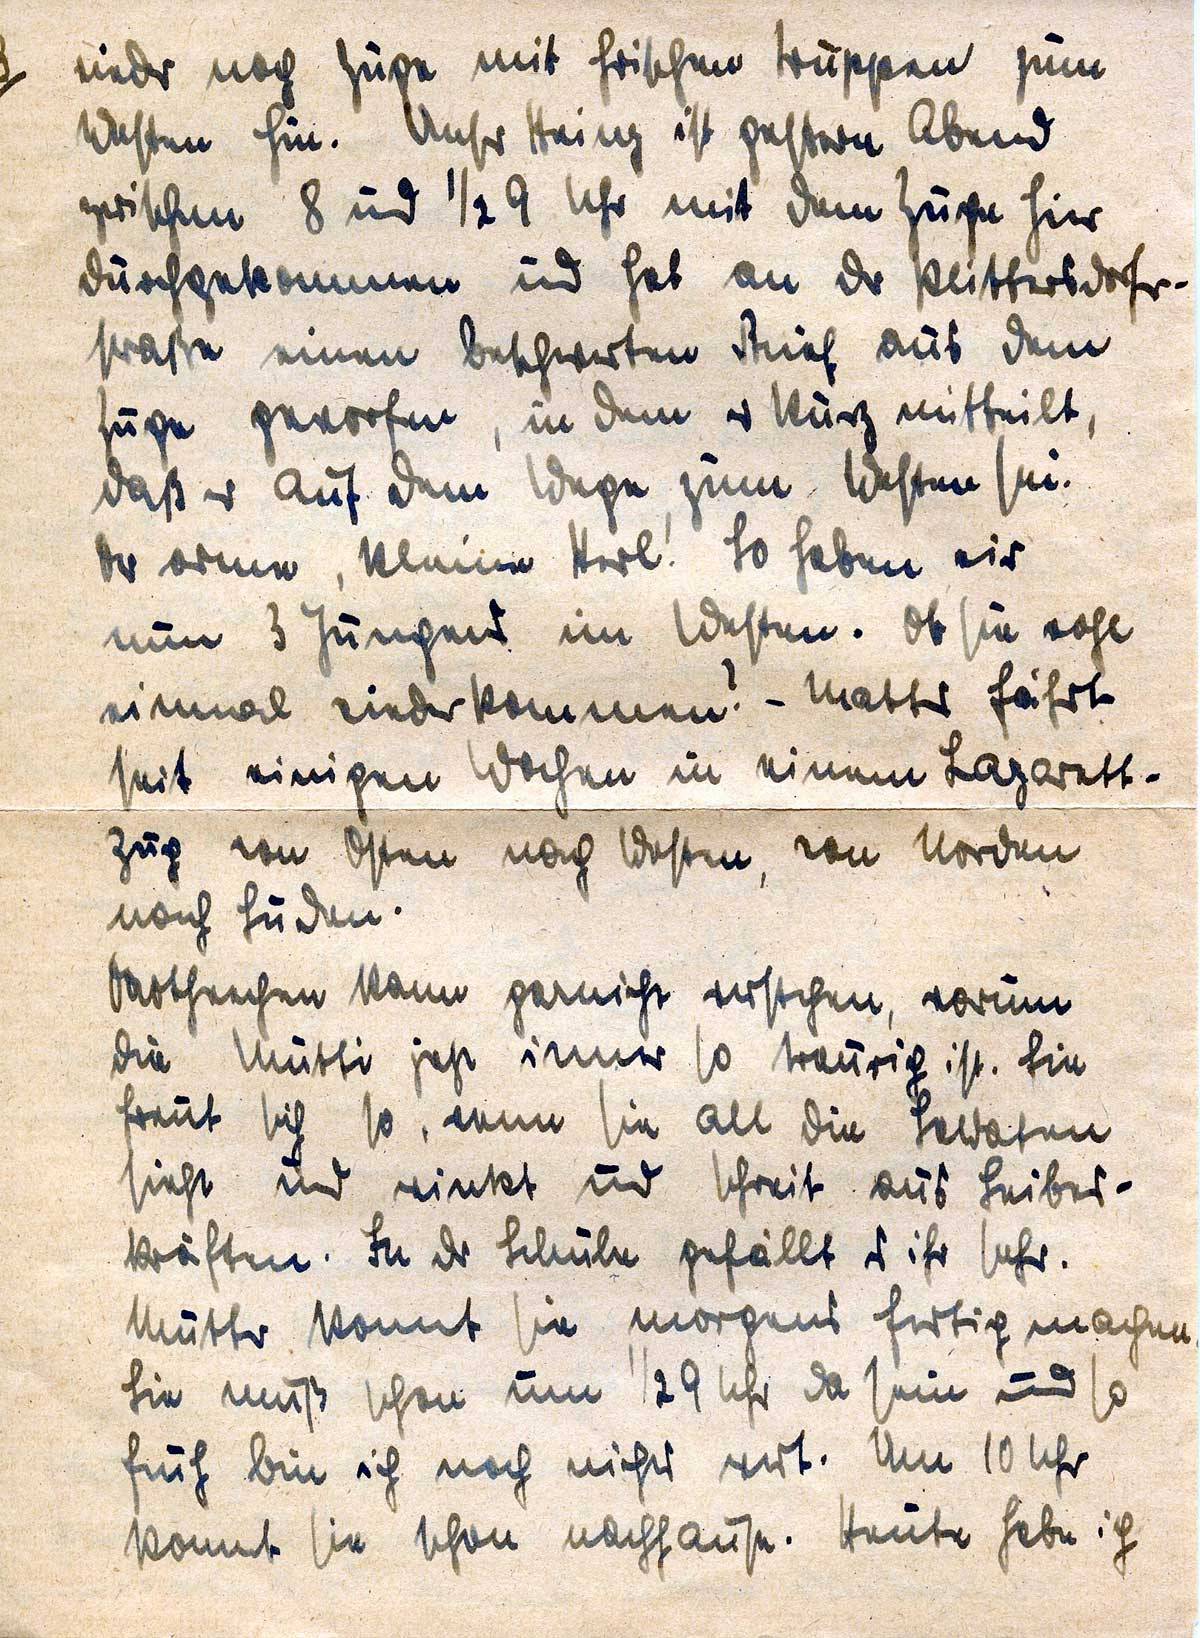 3
wieder noch Züge mit frischen Truppen zum
Westen hin. Unser Heinz ist gestern Abend
zwischen 8 und 1/2 9 Uhr mit dem Zuge hier
durchgekommen und hat an der Klittersdorfer-
straße einen beschwerten Brief aus dem
Zuge geworfen, in dem er kurz mitteilt,
daß er auf dem Wege zum Westen sei.
Der arme, kleine Kerl! So haben wir
nun 3 Jungens im Westen. Ob sie wohl
einmal wiederkommen? – fährt
seit einigen Wochen in einem Lazarett-
zug von Osten nach Westen, von Norden
nach Süden.
kann garnicht verstehen, warum
die Mutti jetzt immer so traurig ist. Sie
freut sich so, wenn sie all die Soldaten
sieht und winkt und schreit aus Leibes-
kräften. In der Schule gefällt es ihr sehr.
Mutter kommt sie morgens fertig machen.
Sie muß schon um 1/2 9 Uhr da sein und so
früh bin ich noch nicht wert. Um 10 Uhr
kommt sie schon nachhause. Heute habe ich